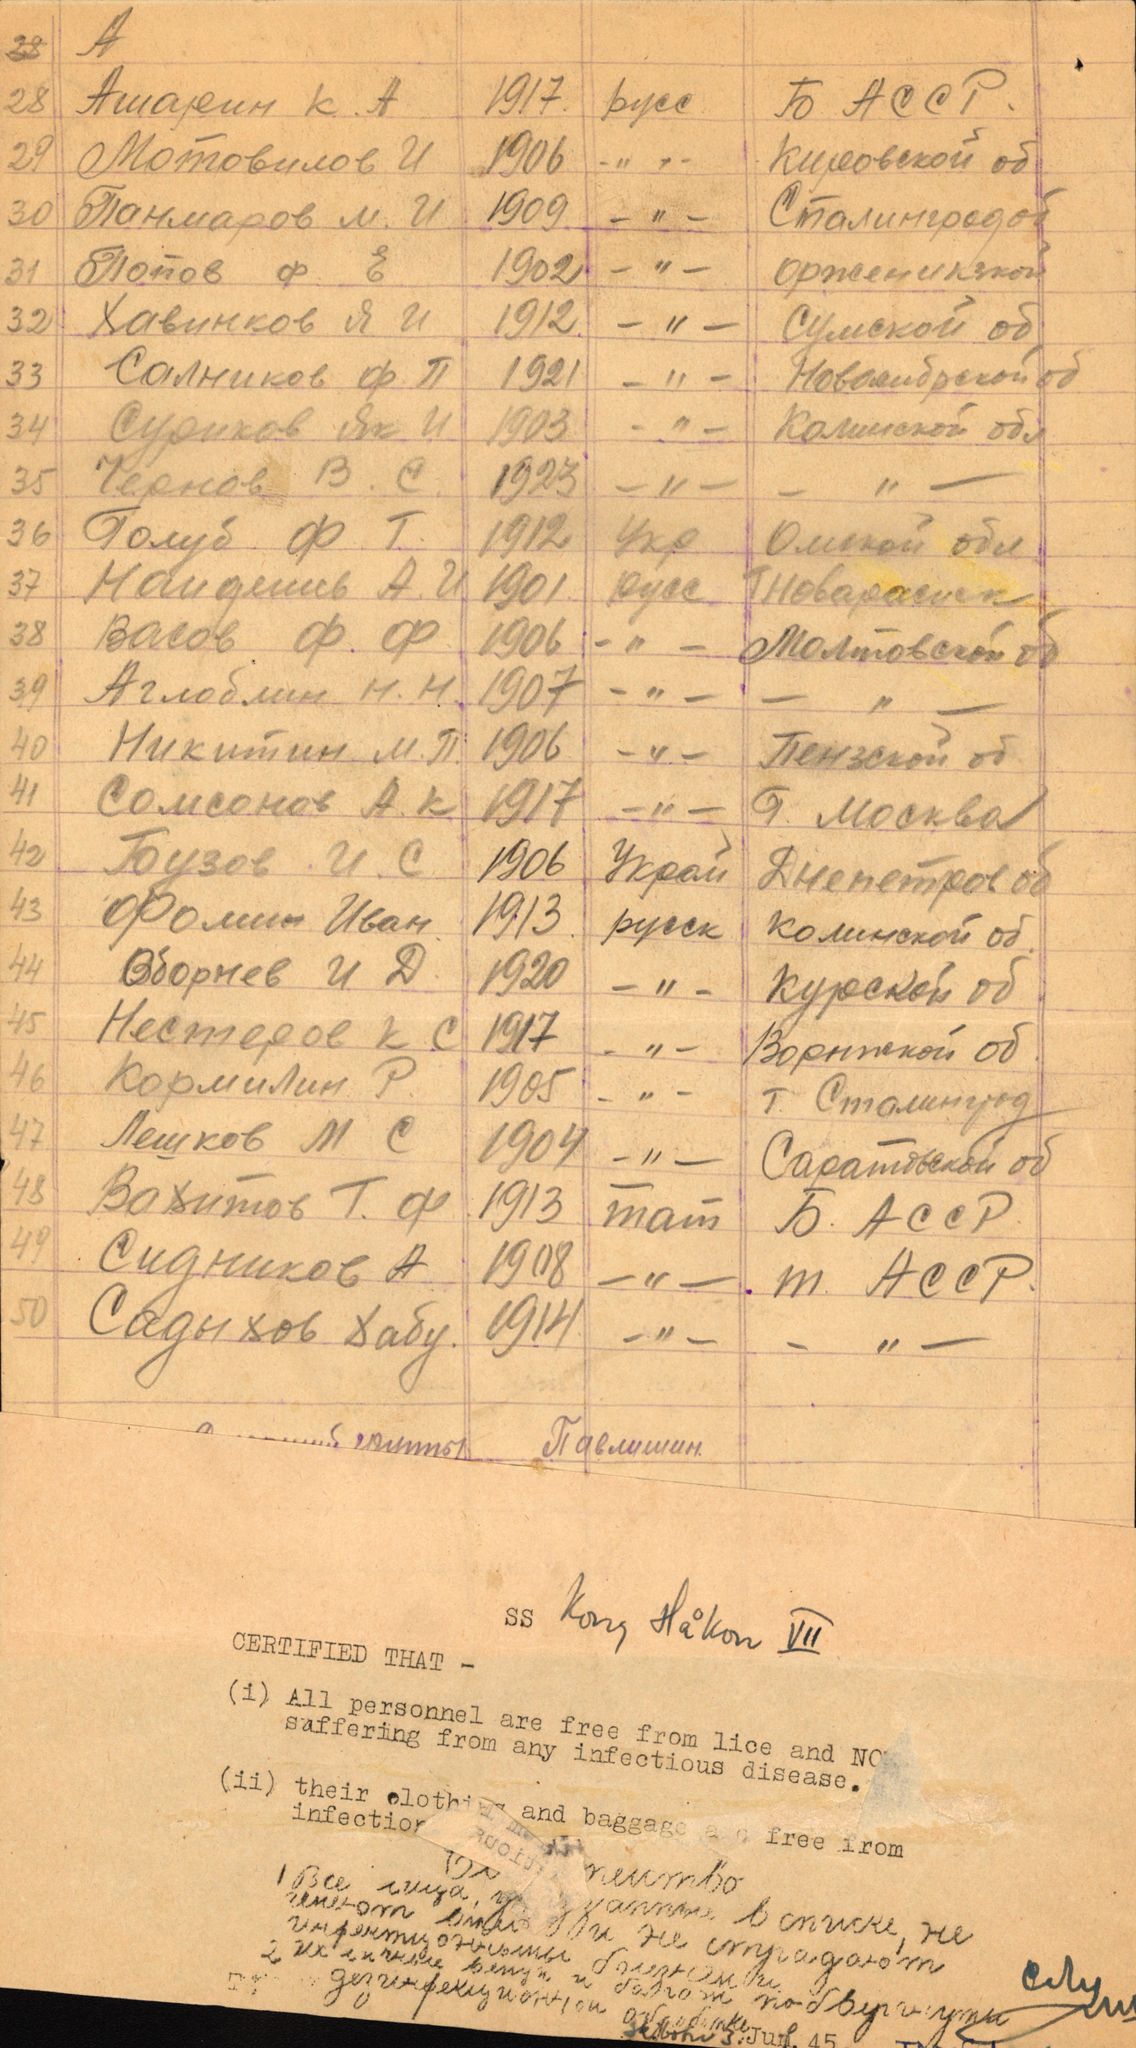 28 А
28 Ашарин К. А 1917. русс Б АССР.
29 Мотовилов И 1906 -"- Кировской об
30 Панмаров м. И 1909 -"- Сталинградой
31 Попов ф Е 1902 -"- орженикзкой
32 Хавинков Я И 1912 -"- Сумской об
33 Салников ф П 1921 -"- Новосибрской об
34 Суриков Як И 1903 -"- Калинской обл
35 Чернов В. С. 1923 -"- -"-
36 Голуб Ф Т. 1912 Укр Омской обл
37 А. И 1901 русс Г
38 Васов Ф. Ф 1906 -"- Молтовской об
39 Аглоблин Н. Н. 1907 -"- -"-
40 Никитин М. П. 1906 -"- Пензской об
41 Сомсонов А. К 1917 -"- Г. Москва
42 Бузов И. С 1906 Украй Днепетров об
43 Фомин Иван. 1913. русск Колинской об.
44 Оборнев И Д. 1920 -"- Курской об
45 Нестеров К С 1917 -"- Воржской об.
46 Кормилин Р. 1905 -"- г. Сталинград
47 Лешков М С 1904 -"- Саратовской об
48 Вахитов Т. Ф 1913 тат Б. АССР
49 Сидников А 1908 -"- т. АССР.
50 Садыхов Хабу. 1914 -"- -"-
Павлишин.
SS Kong Håkon VII
CERTIFIED THAT -
(i) All personnel are free from lice and NO
suffering from any infectious disease.
(ii) their clothing and baggage are free from
infection
1 Все лица, в списке, не
имеют и не страдают
инфекционными болезнями
2 их личные вещи и багаж подвергнуты
дезинфекционной обработке
5. Jul. 45